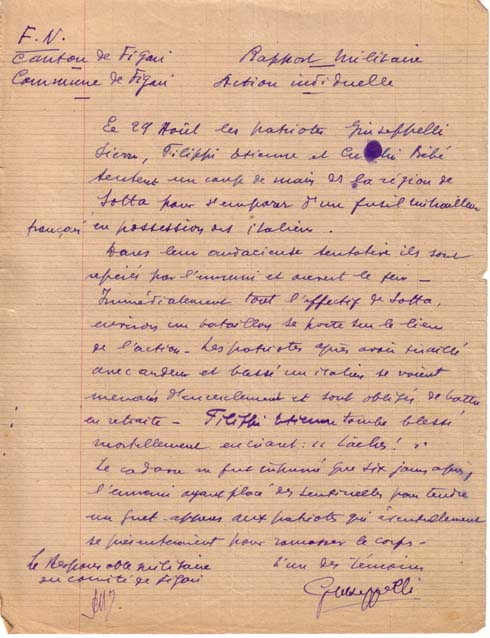 F. N.
Canton de Figari Rapport Militaire
Commune de Figari Action individuelle
Le 29 Août les patriotes Giuseppelli
Pierre, Filippi Etienne et Bébé
tentent un coup de main ds la région de
Sotta pour s'emparer d'un fusil mitrailleur
français en possession des italiens.
Dans leur audacieuse tentative ils sont
repérés par l'ennemi et ouvrent le feu -
Immédiatement tout l'effectif de Sotta,
environ un bataillon se porte sur le lieu
de l'action - Les patriotes après avoir tiraillé
avec ardeur et blessé un italien se voient
menacés d'encerclement et sont obligés de battre
en retraite - Filippi Etienne tombe blessé
mortellement en criant : " Lâches ! "
Le cadavre ne fut inhumé que six jours après,
l'ennemi ayant placé des sentinelles pour tendre
un guet-apens aux patriotes qui éventuellement
se présenteraient pour ramasser le corps -
Le Responsable militaire L'un des témoins
au comité de Figari Giuseppelli